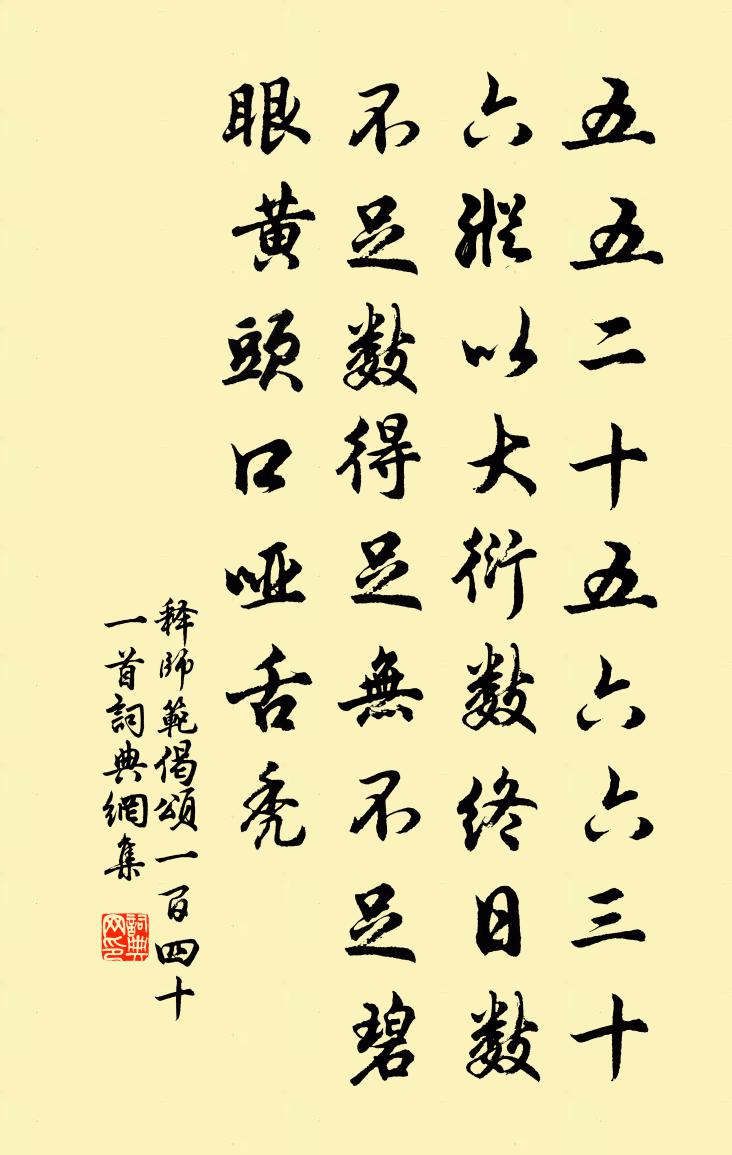 五五二十五六六三十
六縱以大衍数終日数
不足数得足無不足碧
眼黄頭口哑舌秃
释師範偈頌一百四十
一首詞典網集
詞典网印